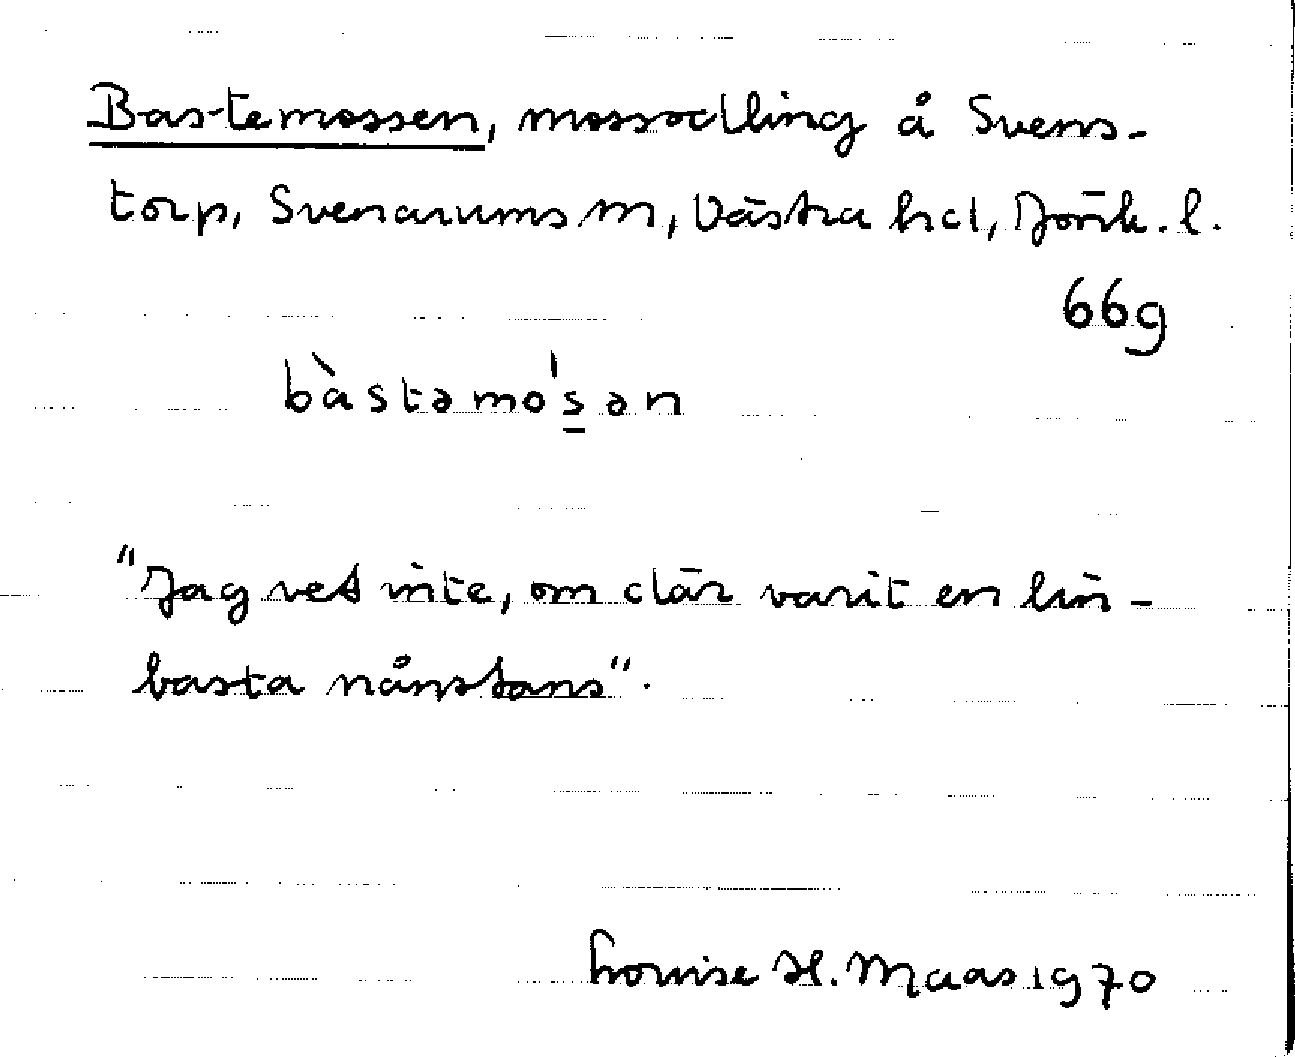 Bastemossen, mossodling å Svens-
torp, Svenarums sn, Västra hd, Jönk. l.
66g
bàstəmo's̲ən
"Jag vet inte, om där varit en lin-
basta nånstans".
Louise H. Maas 1970